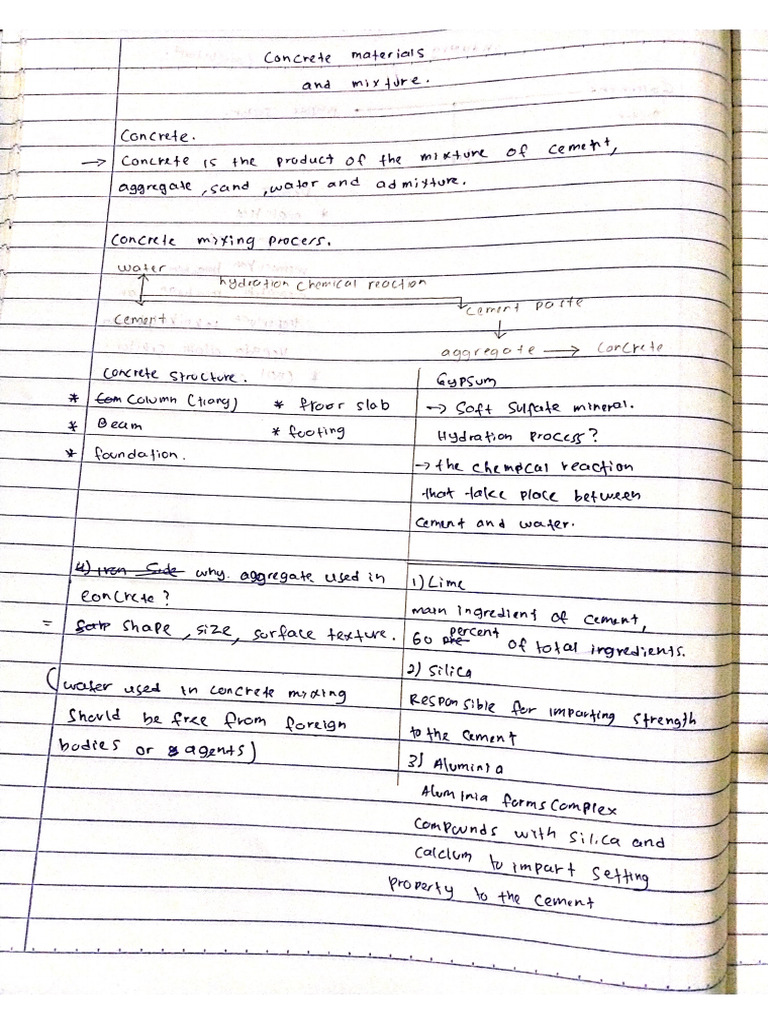 Concrete materials
and mixture.
Concrete.
→ Concrete is the product of the mixture of cement,
aggregate, sand, water and admixture.
Concrete mixing process.
water
hydration chemical reaction
cement paste
cement
aggregate → concrete
Concrete structure.
* Column
* floor slab
* Beam
* footing
* foundation.
Gypsum
→ Soft sulfate mineral.
Hydration process?
→ the chemical reaction
that take place between
cement and water.
why. aggregate used in
concrete?
= shape, size, surface texture.
(water used in concrete mixing
should be free from foreign
bodies or agents)
1) Lime
main ingredient of cement,
60 percent of total ingredients.
2) Silica
Responsible for imparting strength
to the cement
3) Aluminia
Aluminia forms complex
compounds with silica and
calcium to impart setting
property to the cement